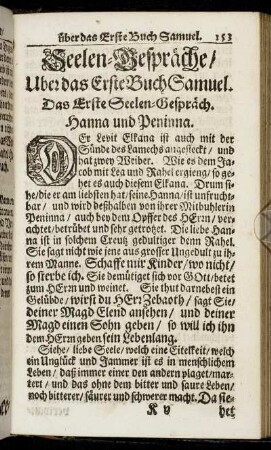 über das Erste Buch Samuel. 153
Seelen-Gespräche/
Uber das Erste Buch Samuel.
Das Erste Seelen-Gespräch.
Hanna und Peninna.
Er Levit Elkana ist auch mit der
Sünde des Lamechs angesteckt/ und
hat zwey Weiber. Wie es dem Ja-
cob mit Lea und Rahel ergieng/ so ge-
het es auch diesem Elkana. Drum sie-
he/die er am liebsten hat/seine Hanna/ist unfrucht-
bar/ und wird deßhalben von ihrer Mitbuhlerin
Peninna/ auch bey dem Opffer des HErrn/ ver-
achtet/betrübet und sehr getrotzet. Die liebe Han-
na ist in solchem Creutz gedultiger denn Rahel.
Sie sagt nicht wie jene aus grosser Ungedult zu ih-
rem Manne. Schaffe mir Kinder/wo nicht/
so sterbe ich. Sie demütiget sich vor GOtt/betet
zum HErrn und weinet. Sie thut darnebest ein
Gelübde/ wirst du HErr Zebaoth/ sagt Sie/
deiner Magd Elend ansehen/ und deiner
Magd einen Sohn geben/ so will ich ihn
dem HErrn geben sein Lebenlang.
Siehe/ liebe Seele/ welch eine Eitelkeit/ welch
ein Unglück und Jammer ist es in menschlichem
Leben/ daß immer einer den andern plaget/mar-
tert/ und das ohne dem bitter und saure Leben/
noch bitterer/ säurer und schwerer macht. Da sie-
K v
het